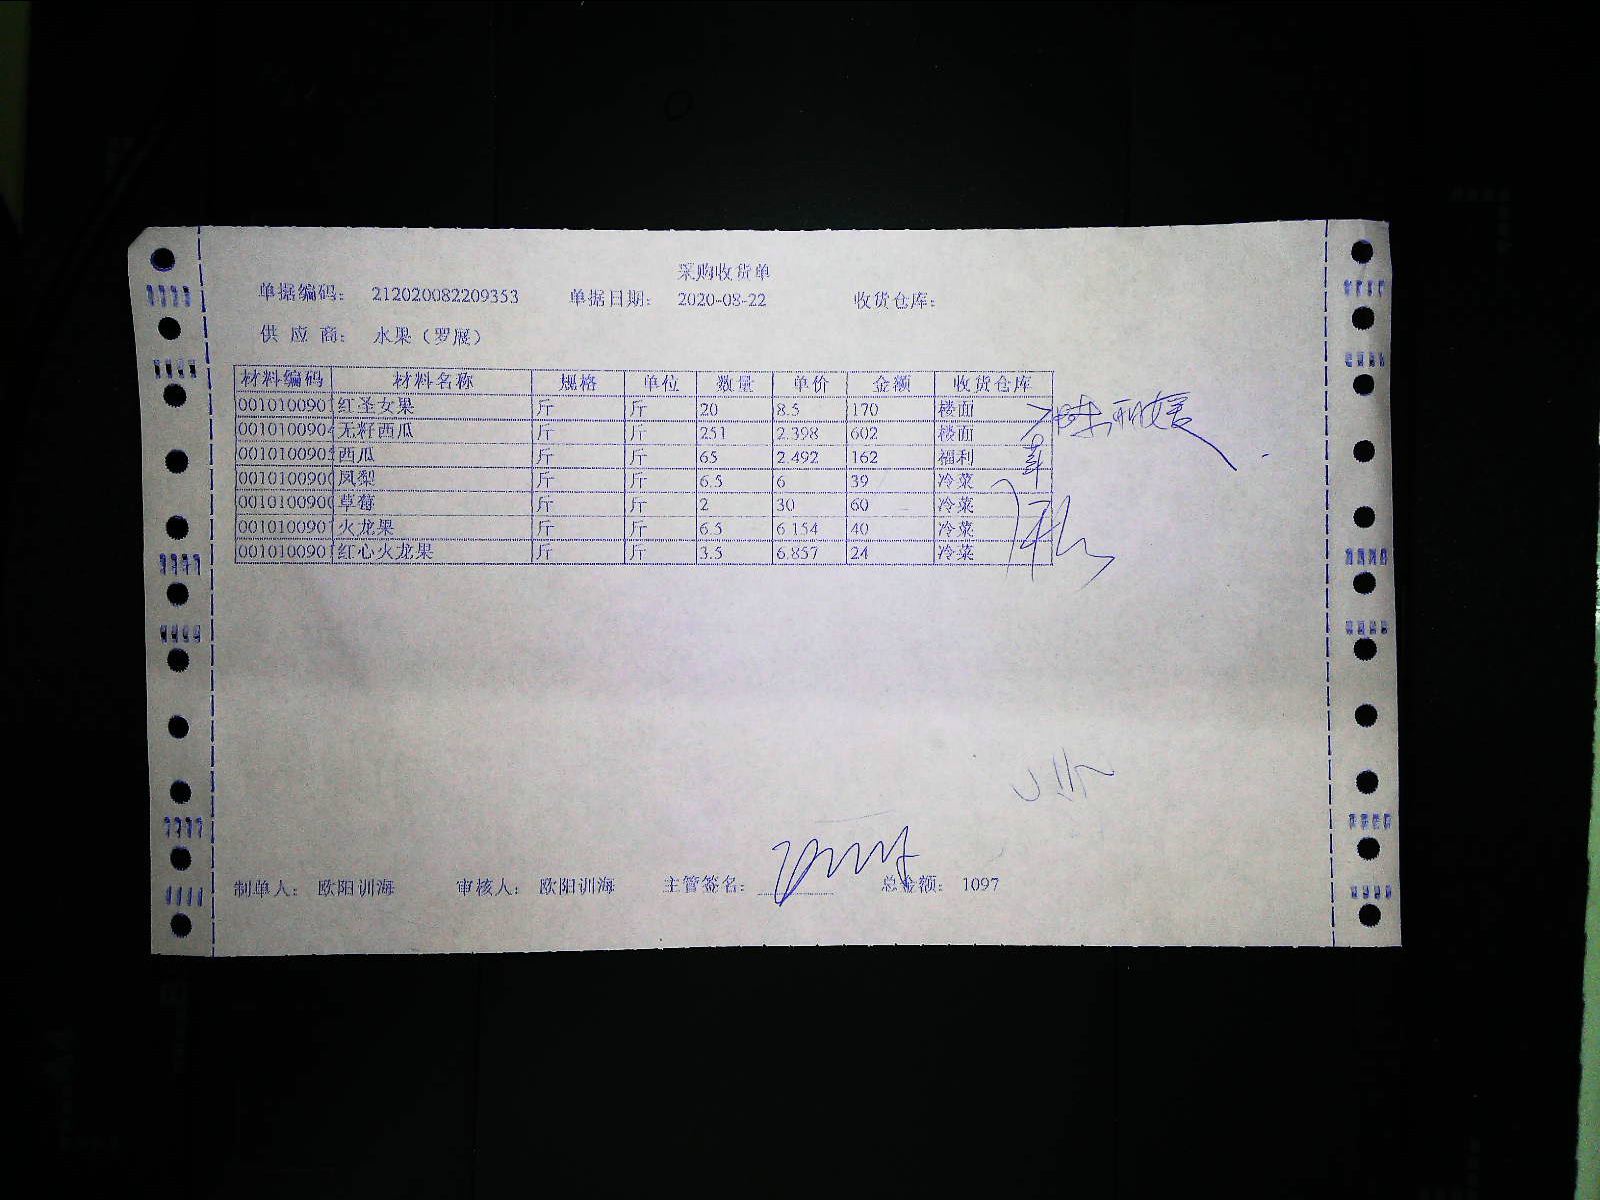 采购收货单
单据编码： 212020082209353 单据日期： 2020-08-22 收货仓库：
供 应 商： 水果（罗展）
材料编码 材料名称 规格 单位 数量 单价 金额 收货仓库
0010100901 红圣女果 斤 斤 20 8.5 170 楼面
0010100904 无籽西瓜 斤 斤 251 2.398 602 楼面
0010100905 西瓜 斤 斤 65 2.492 162 福利
0010100900 凤梨 斤 斤 6.5 6 39 冷菜
0010100900 草莓 斤 斤 2 30 60 冷菜
0010100901 火龙果 斤 斤 6.5 6.154 40 冷菜
0010100901 红心火龙果 斤 斤 3.5 6.857 24 冷菜
制单人： 欧阳训海 审核人： 欧阳训海 主管签名： 总金额： 1097